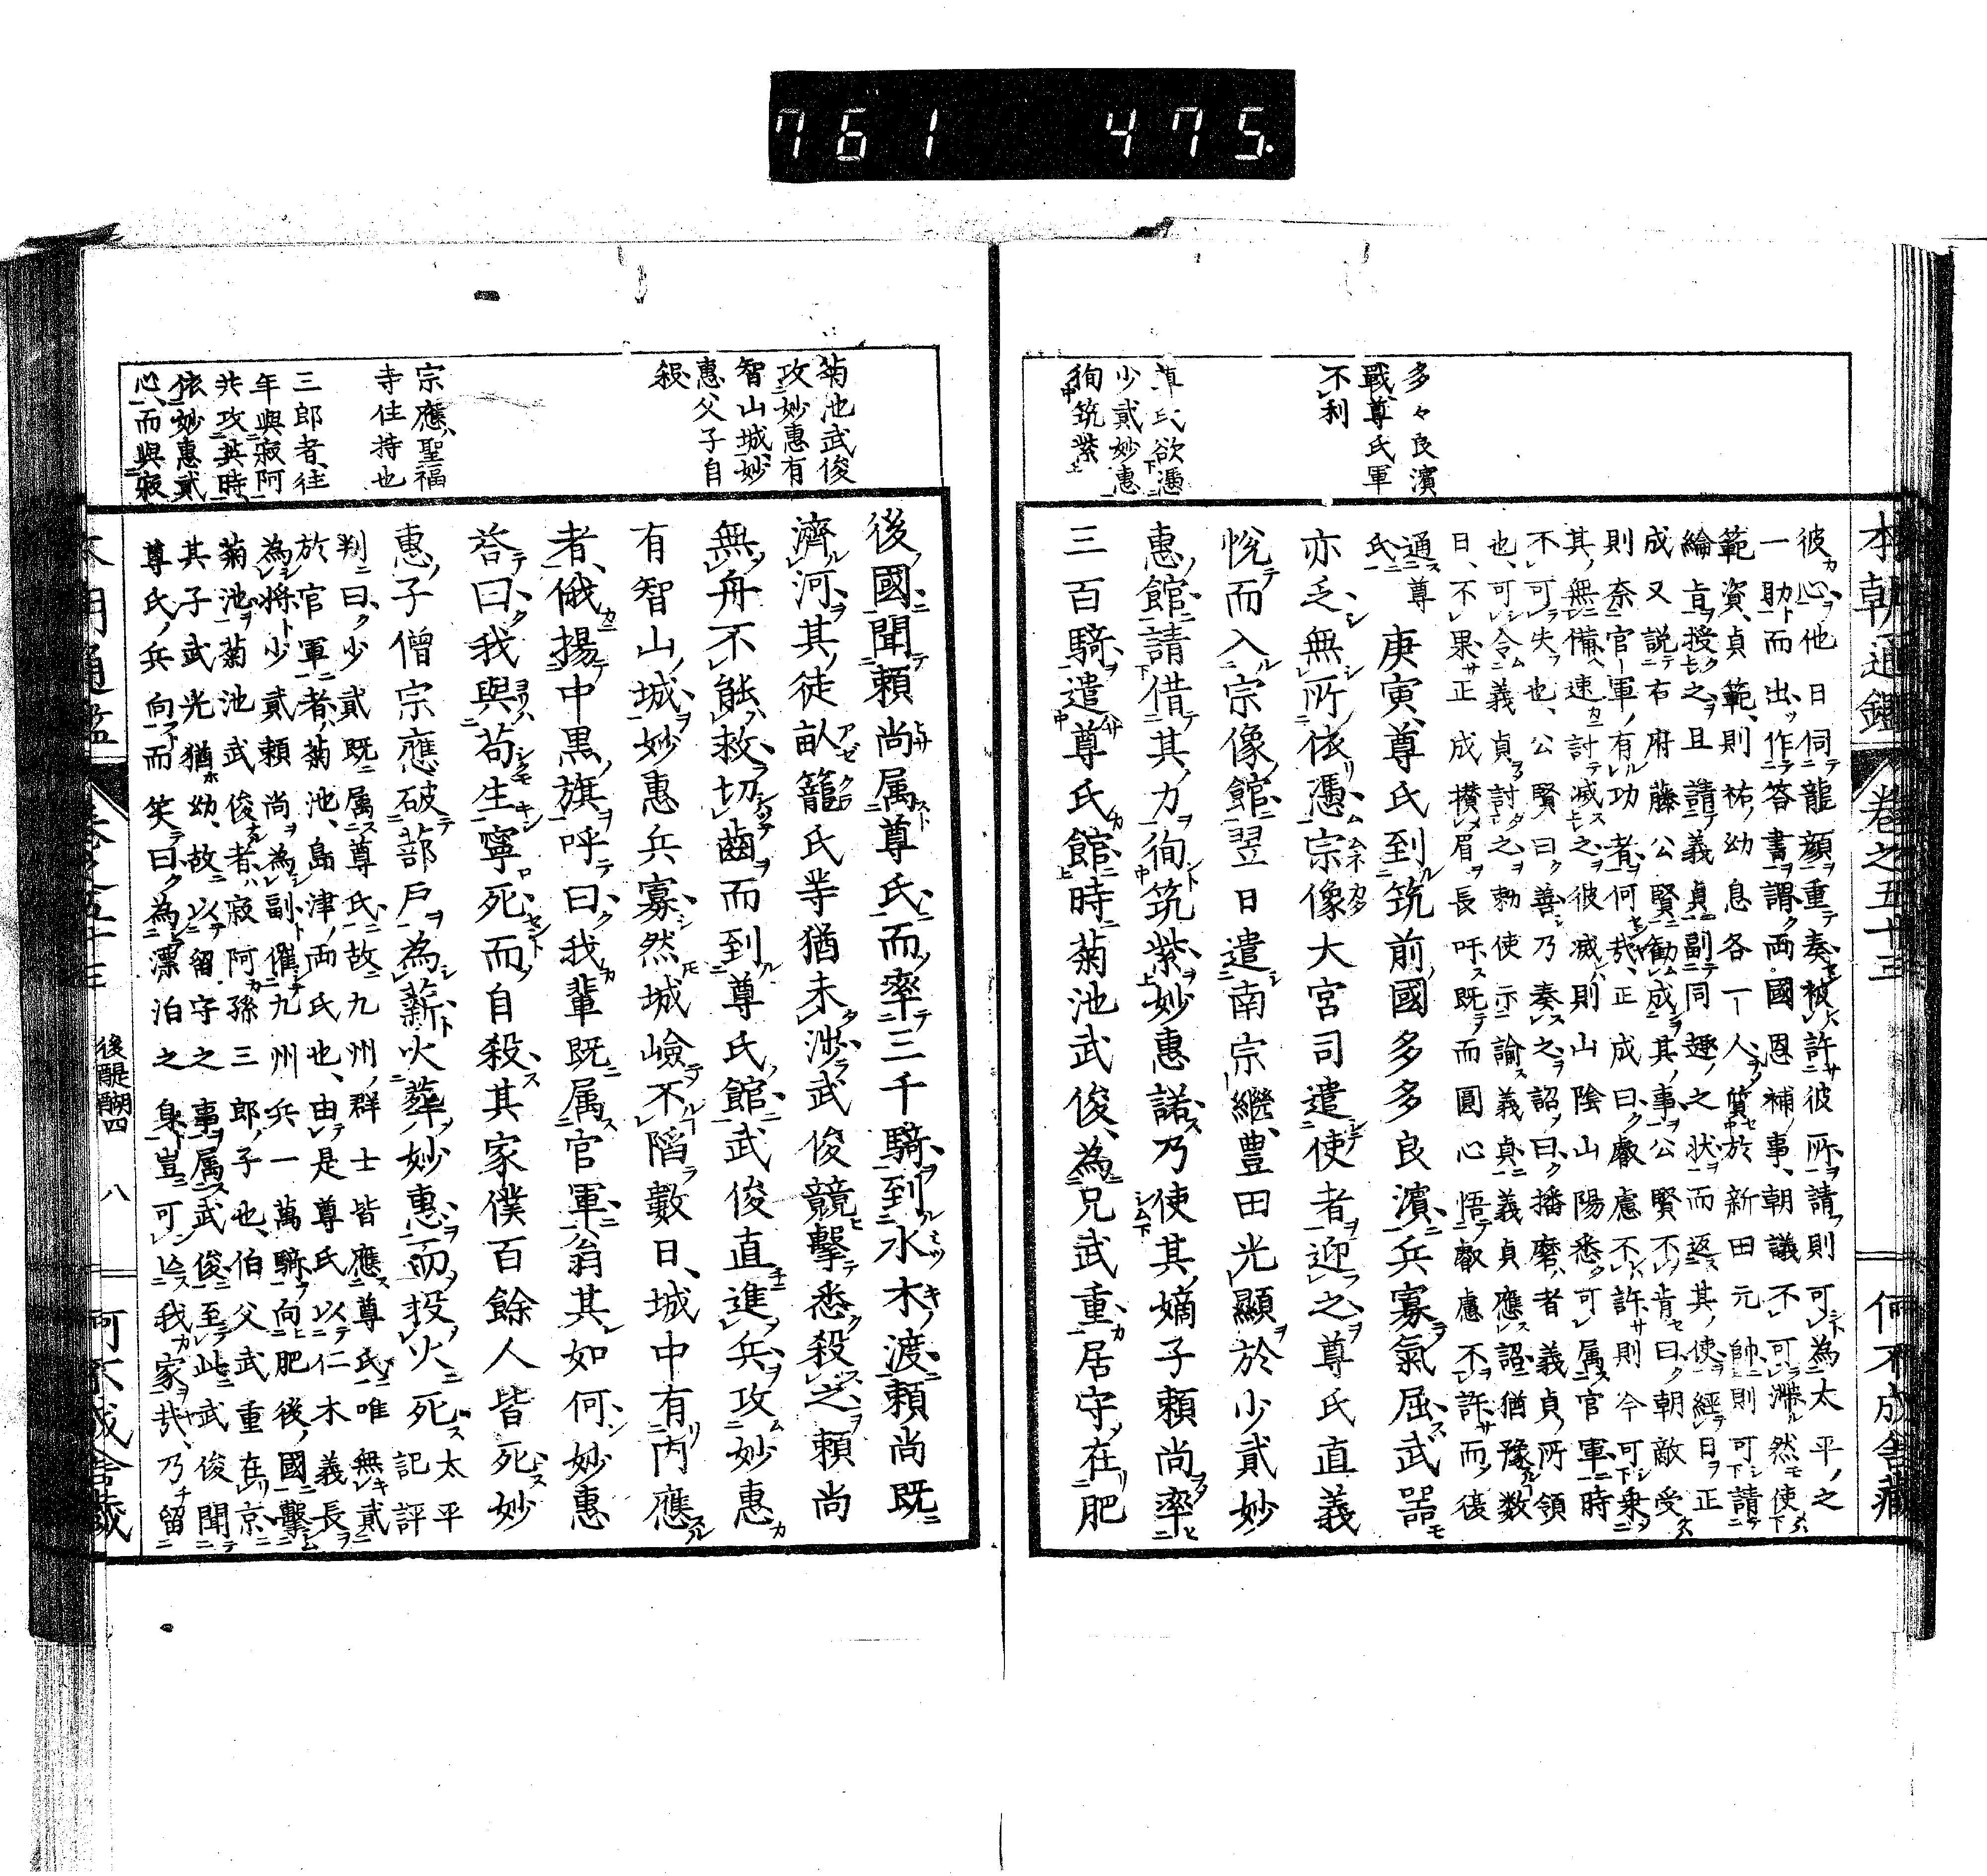 761 475.
本朝通鑑 卷之五十三 何不成舎蔵
多々良濱
戰尊氏軍
不利
尊氏欲憑
少貳妙惠
徇筑紫
彼心他日伺龍顔重奏被許彼所請則可為太平之
一助而出作答書謂両國恩補事朝議不可滞然使
範資貞範則祐幼息各一人質於新田元帥則可請
綸旨授之且請義貞副同趣之状而返其使經日正
成又説右府藤公賢勧成其事公賢不肯曰朝敵受
則奈官軍有功者何哉正成曰叡慮不許則今可乗
其無備速討滅之彼滅則山陰山陽悉可属官軍時
不可失也公賢曰善乃奏之詔曰播磨者義貞所領
也可令義貞討之勅使示諭義貞義貞應詔猶豫数
日不果正成攅眉長吁既而圓心悟叡慮不許而復
通尊
氏
庚寅尊氏到筑前國多多良濱兵寡氣屈武噐
亦乏無所依憑宗像大宮司遣使者迎之尊氏直義
悦而入宗像館翌日遣南宗繼豊田光顯於少貳妙
惠館請借其力徇筑紫妙惠諾乃使其嫡子頼尚率
三百騎遣尊氏館時菊池武俊為兄武重居守在肥
菊池武俊
攻妙惠有
智山城妙
惠父子自
殺
宗應聖福
寺住持也
三郎者往
年與寂阿
共攻英時
依妙惠貳
心而與寂
後國聞頼尚属尊氏而率三千騎到水木渡頼尚既
濟河其徒畒籠氏等猶未渉武俊競擊悉殺之頼尚
無舟不能救切齒而到尊氏館武俊直進兵攻妙惠
有智山城妙惠兵寡然城嶮不陷數日城中有内應
者俄揚中黒旗呼曰我輩既属官軍翁其如何妙惠
荅曰我與苟生寧死而自殺其家僕百餘人皆死妙
惠子僧宗應破蔀戸為薪火葬妙惠而投火死
太平
記評
判曰少貳既属尊氏故九州群士皆應尊氏唯無貳
於官軍者菊池島津両氏也由是尊氏以仁木義長
為将少貳頼尚為副催九州兵一萬騎向肥後國擊
菊池菊池武俊者寂阿孫三郎子也伯父武重在京
其子武光猶幼故以留守之事属武俊至此武俊聞
尊氏兵向而笑曰為漂泊之身豈可亡我家哉乃留
後醍醐四 八